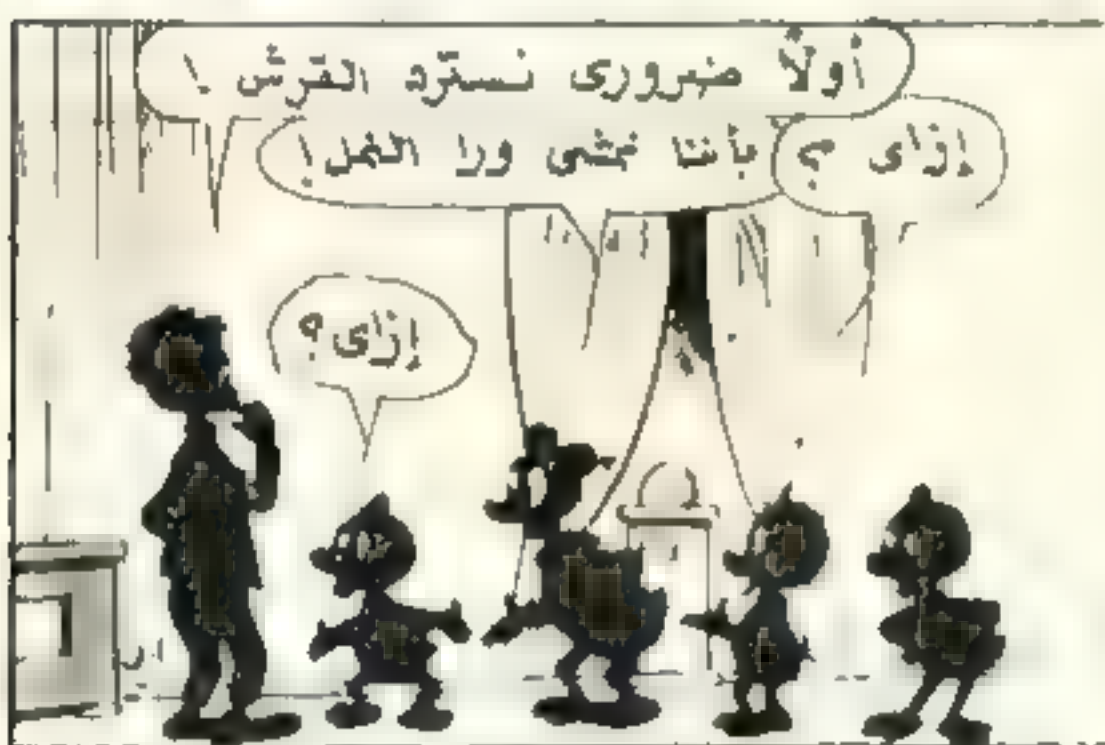 أولاً ضرورى نسترد القرش !
إزاى ؟
بأننا نمشى ورا النمل !
إزاى ؟